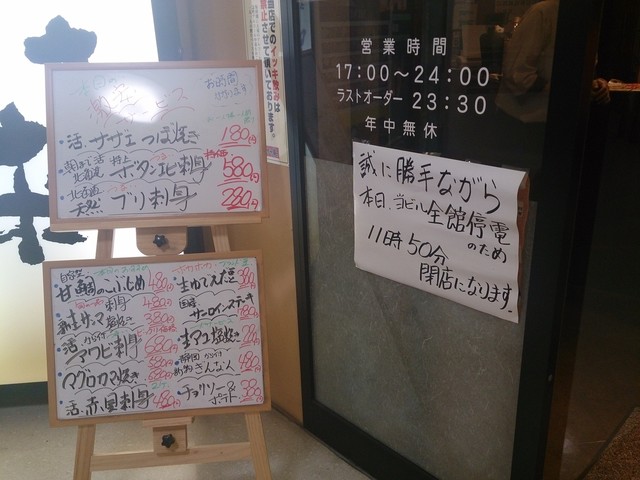 当店でのイッキ飲みは
禁止させて頂いております。
営業時間
17:00～24:00
ラストオーダー 23:30
年中無休
誠に勝手ながら
本日、当ビル全館停電
のため
11時50分
閉店になります。
本日の
サービス
活サザエつぼ焼き 180円
ボタンエビ刺身 580円
北海道
天然 ブリ刺身 280円
甘鯛のこぶじめ 480円
刺身 480円
新生サンマ 塩焼き 380円
活アワビ刺身 680円
マグロカマ焼き
活赤貝刺身 480円
生ゆで大豆
国産
サーロインステーキ
生アユ塩焼き
静岡
ぎんなん 480円
チョリソー&
ポテト